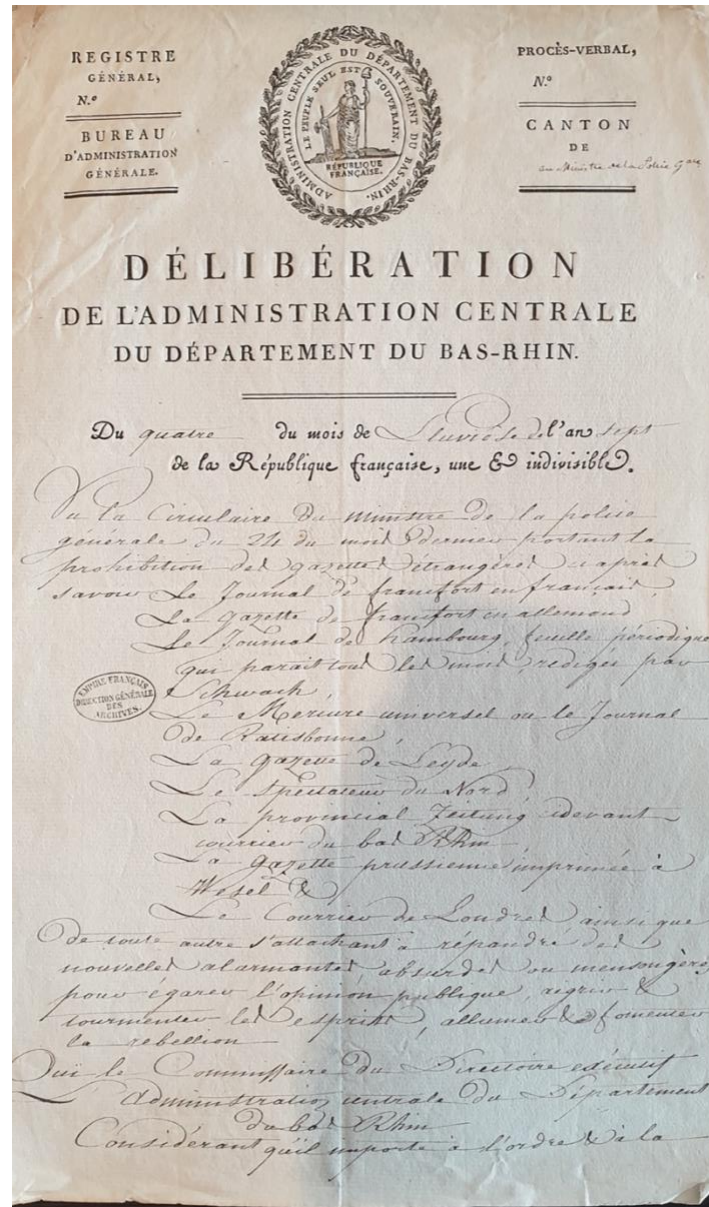 REGISTRE
GÉNÉRAL,
N.º
BUREAU
D'ADMINISTRATION
GÉNÉRALE.
ADMINISTRATION CENTRALE DU DÉPARTEMENT DU BAS-RHIN.
LE PEUPLE SEUL EST SOUVERAIN.
RÉPUBLIQUE
FRANÇAISE.
PROCÈS-VERBAL,
N.º
CANTON
DE
au Ministre de la Police Gale
DÉLIBÉRATION
DE L'ADMINISTRATION CENTRALE
DU DÉPARTEMENT DU BAS-RHIN.
Du quatre du mois de Pluviôse de l'an sept
de la République française, une & indivisible.
Vu la Circulaire du Ministre de la police
générale du 24 du mois dernier portant la
prohibition des gazettes étrangères ci après
savoir Le Journal de francfort en français,
La gazette de francfort en allemand
Le Journal de hambourg, feuille périodique
qui parait tous les mois redigés par
Schwach,
Le Mercure universel ou le Journal
de Ratisbonne,
La gazette de Leyde,
Le spectateur du Nord,
La provincial Zeitung cidevant
courrier du bas Rhin
La gazette prussienne imprimée à
Wesel &
Le Courrier de Londres ainsi que
de toute autre s'attachant à répandre des
nouvelles alarmantes absurdes ou mensongères
pour égarer l'opinion publique, aigrir &
tourmenter les esprits, allumer & fomenter
la rebellion
Oui le Commissaire du Directoire exécutif
L'Administration centrale du Département
du bas Rhin
Considérant qu'il importe à l'ordre & à la
EMPIRE FRANÇAIS
DIRECTION GÉNÉRALE
DES
ARCHIVES.